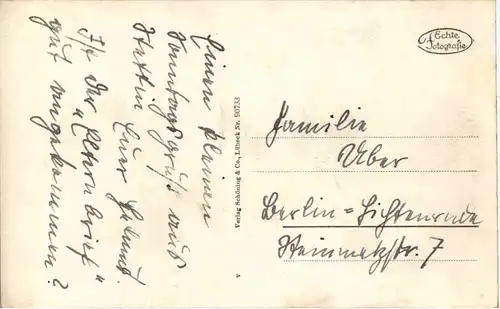 Einen kleinen
Sonntagsgruß aus
Stettin Euer Helmut.
Ist der "Elternbrief"
gut angekommen?
Verlag Schöning & Co., Lübeck Nr. 90733
V
Echte
Fotografie
Familie
Über
Berlin=Lichtenrade
Steinmetzstr. 7